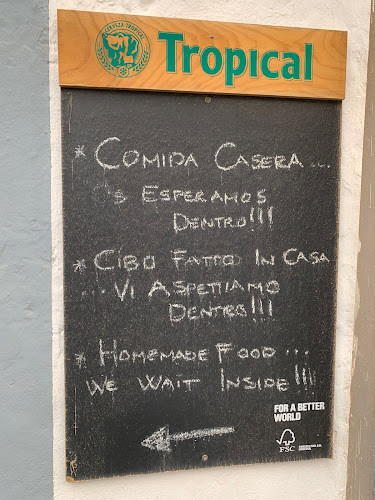 CERVEZA TROPICAL
Tropical
* COMIDA CASERA ...
OS ESPERAMOS
DENTRO!!!
* CIBO FATTO IN CASA
... VI ASPETTIAMO
DENTRO!!!
* HOMEMADE FOOD ...
WE WAIT INSIDE!!!
FOR A BETTER
WORLD
FSC